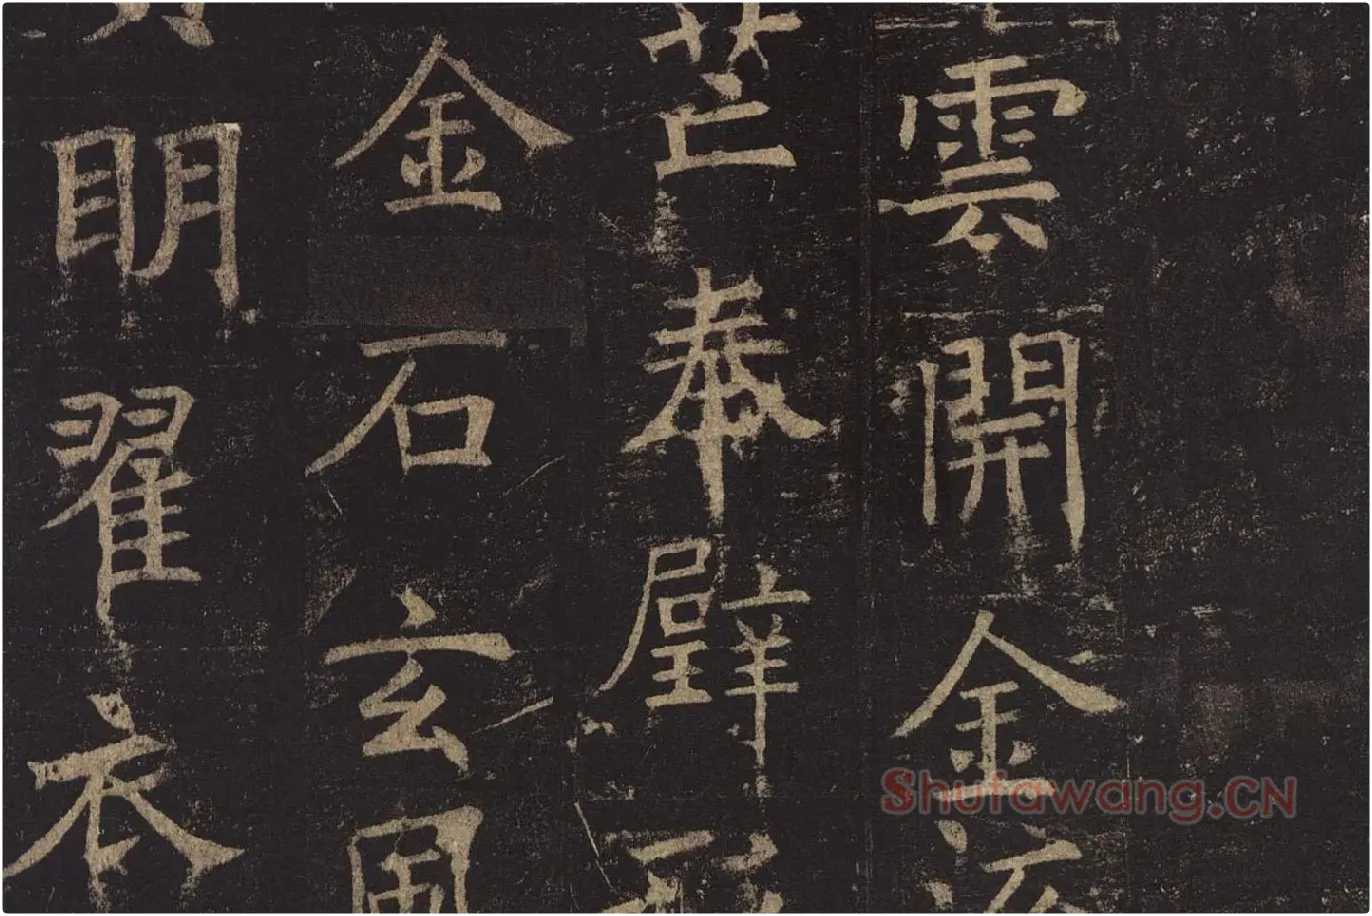 雲開金
芒奉璧
金石玄
眀翟衣
Shufawang.CN